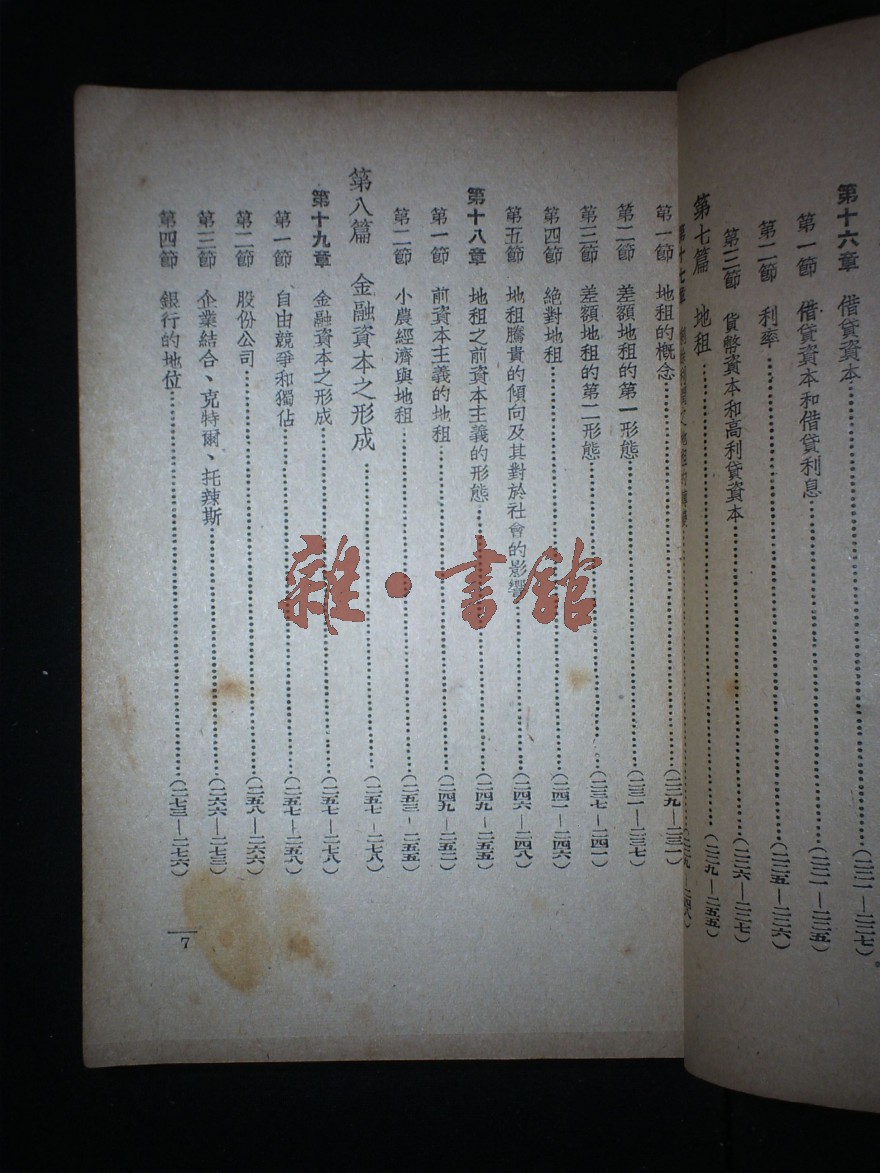 第十六章 借貸資本……(二二一—二二七)
第一節 借貸資本和借貸利息……(二二一—二二五)
第二節 利率……(二二五—二二六)
第三節 貨幣資本和高利貸資本……(二二六—二二七)
第七篇 地租……(二二九—二五五)
第十七章
第一節 地租的概念……(二二九—二三一)
第二節 差額地租的第一形態……(二三一—二三七)
第三節 差額地租的第二形態……(二三七—二四一)
第四節 絕對地租……(二四一—二四六)
第五節 地租騰貴的傾向及其對於社會的影響……(二四六—二四八)
第十八章 地租之前資本主義的形態……(二四九—二五五)
第一節 前資本主義的地租……(二四九—二五二)
第二節 小農經濟與地租……(二五三—二五五)
第八篇 金融資本之形成……(二五七—二七八)
第十九章 金融資本之形成……(二五七—二七八)
第一節 自由競爭和獨佔……(二五七—二五八)
第二節 股份公司……(二五八—二六六)
第三節 企業結合、克特爾、托辣斯……(二六六—二七三)
第四節 銀行的地位……(二七三—二七六)
7
雜·書館